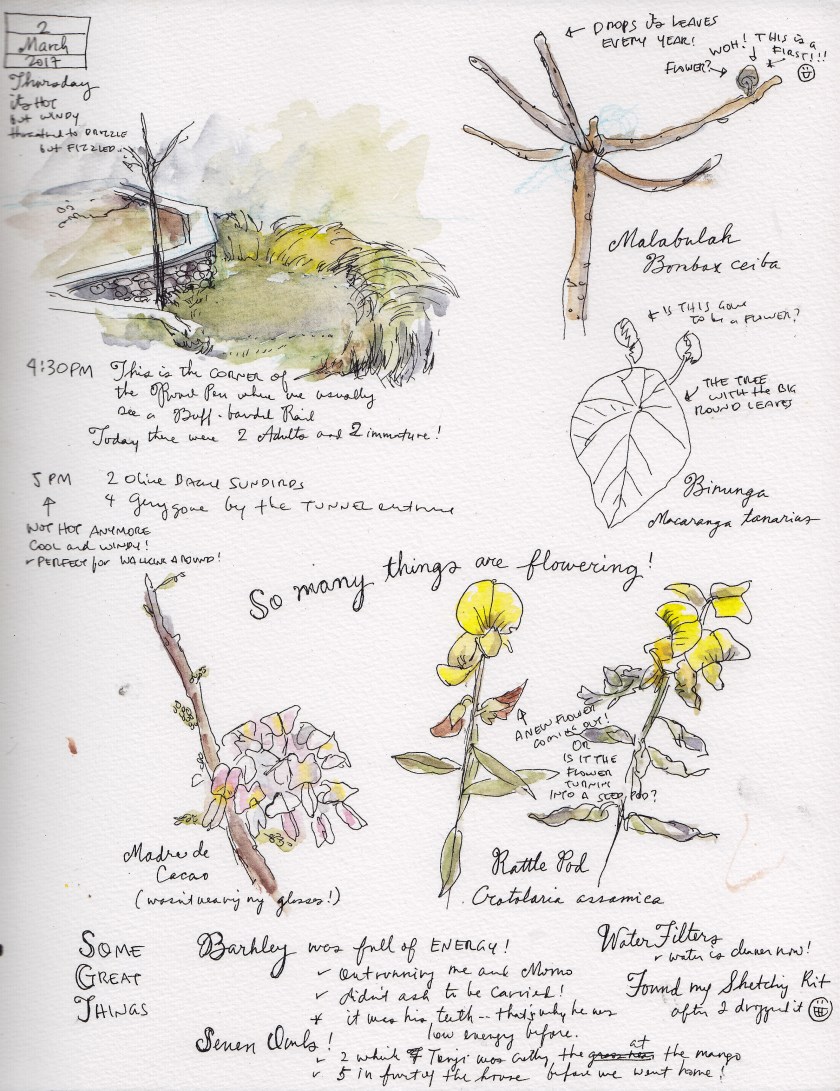 2
March
2017
Thursday
it's HOT
but WINDY
threatened to DRIZZLE
but FIZZLED..
DROPS its LEAVES
EVERY YEAR!
WOH! THIS is a
FIRST!!!
FLOWER?
Malabulak
Bombax ceiba
4:30PM This is the CORNER of
the Pen where we usually
see a Buff-banded Rail
Today there were 2 Adults and 2 immature!
IS THIS GONE
to be a FLOWER?
THE TREE
WITH the BIG
ROUND LEAVES
Binunga
Macaranga tanarius
5 PM 2 Olive Backed SUNBIRDS
4 Gerygone by the TUNNEL entrance
NOT HOT ANYMORE
COOL and WINDY!
PERFECT for WALKING AROUND!
So many things are flowering!
A NEW FLOWER
COMING OUT!
OR
IS IT THE
FLOWER
TURNING
INTO A SEED POD?
Madre de
Cacao
(wasn't wearing my glasses!)
Rattle Pod
Crotolaria assamica
SOME
GREAT
THINGS
Barkley was full of ENERGY!
✓ Outrunning me and Momo
✓ didn't ask to be carried!
* it was his teeth -- that's why he was
low energy before.
Seven Owls!
✓ 2 which Tonji was the at the mango
✓ 5 in front of the house before we went home!
Water Filters
✓ water is cleaner now!
Found my Sketching Kit
after I dropped it